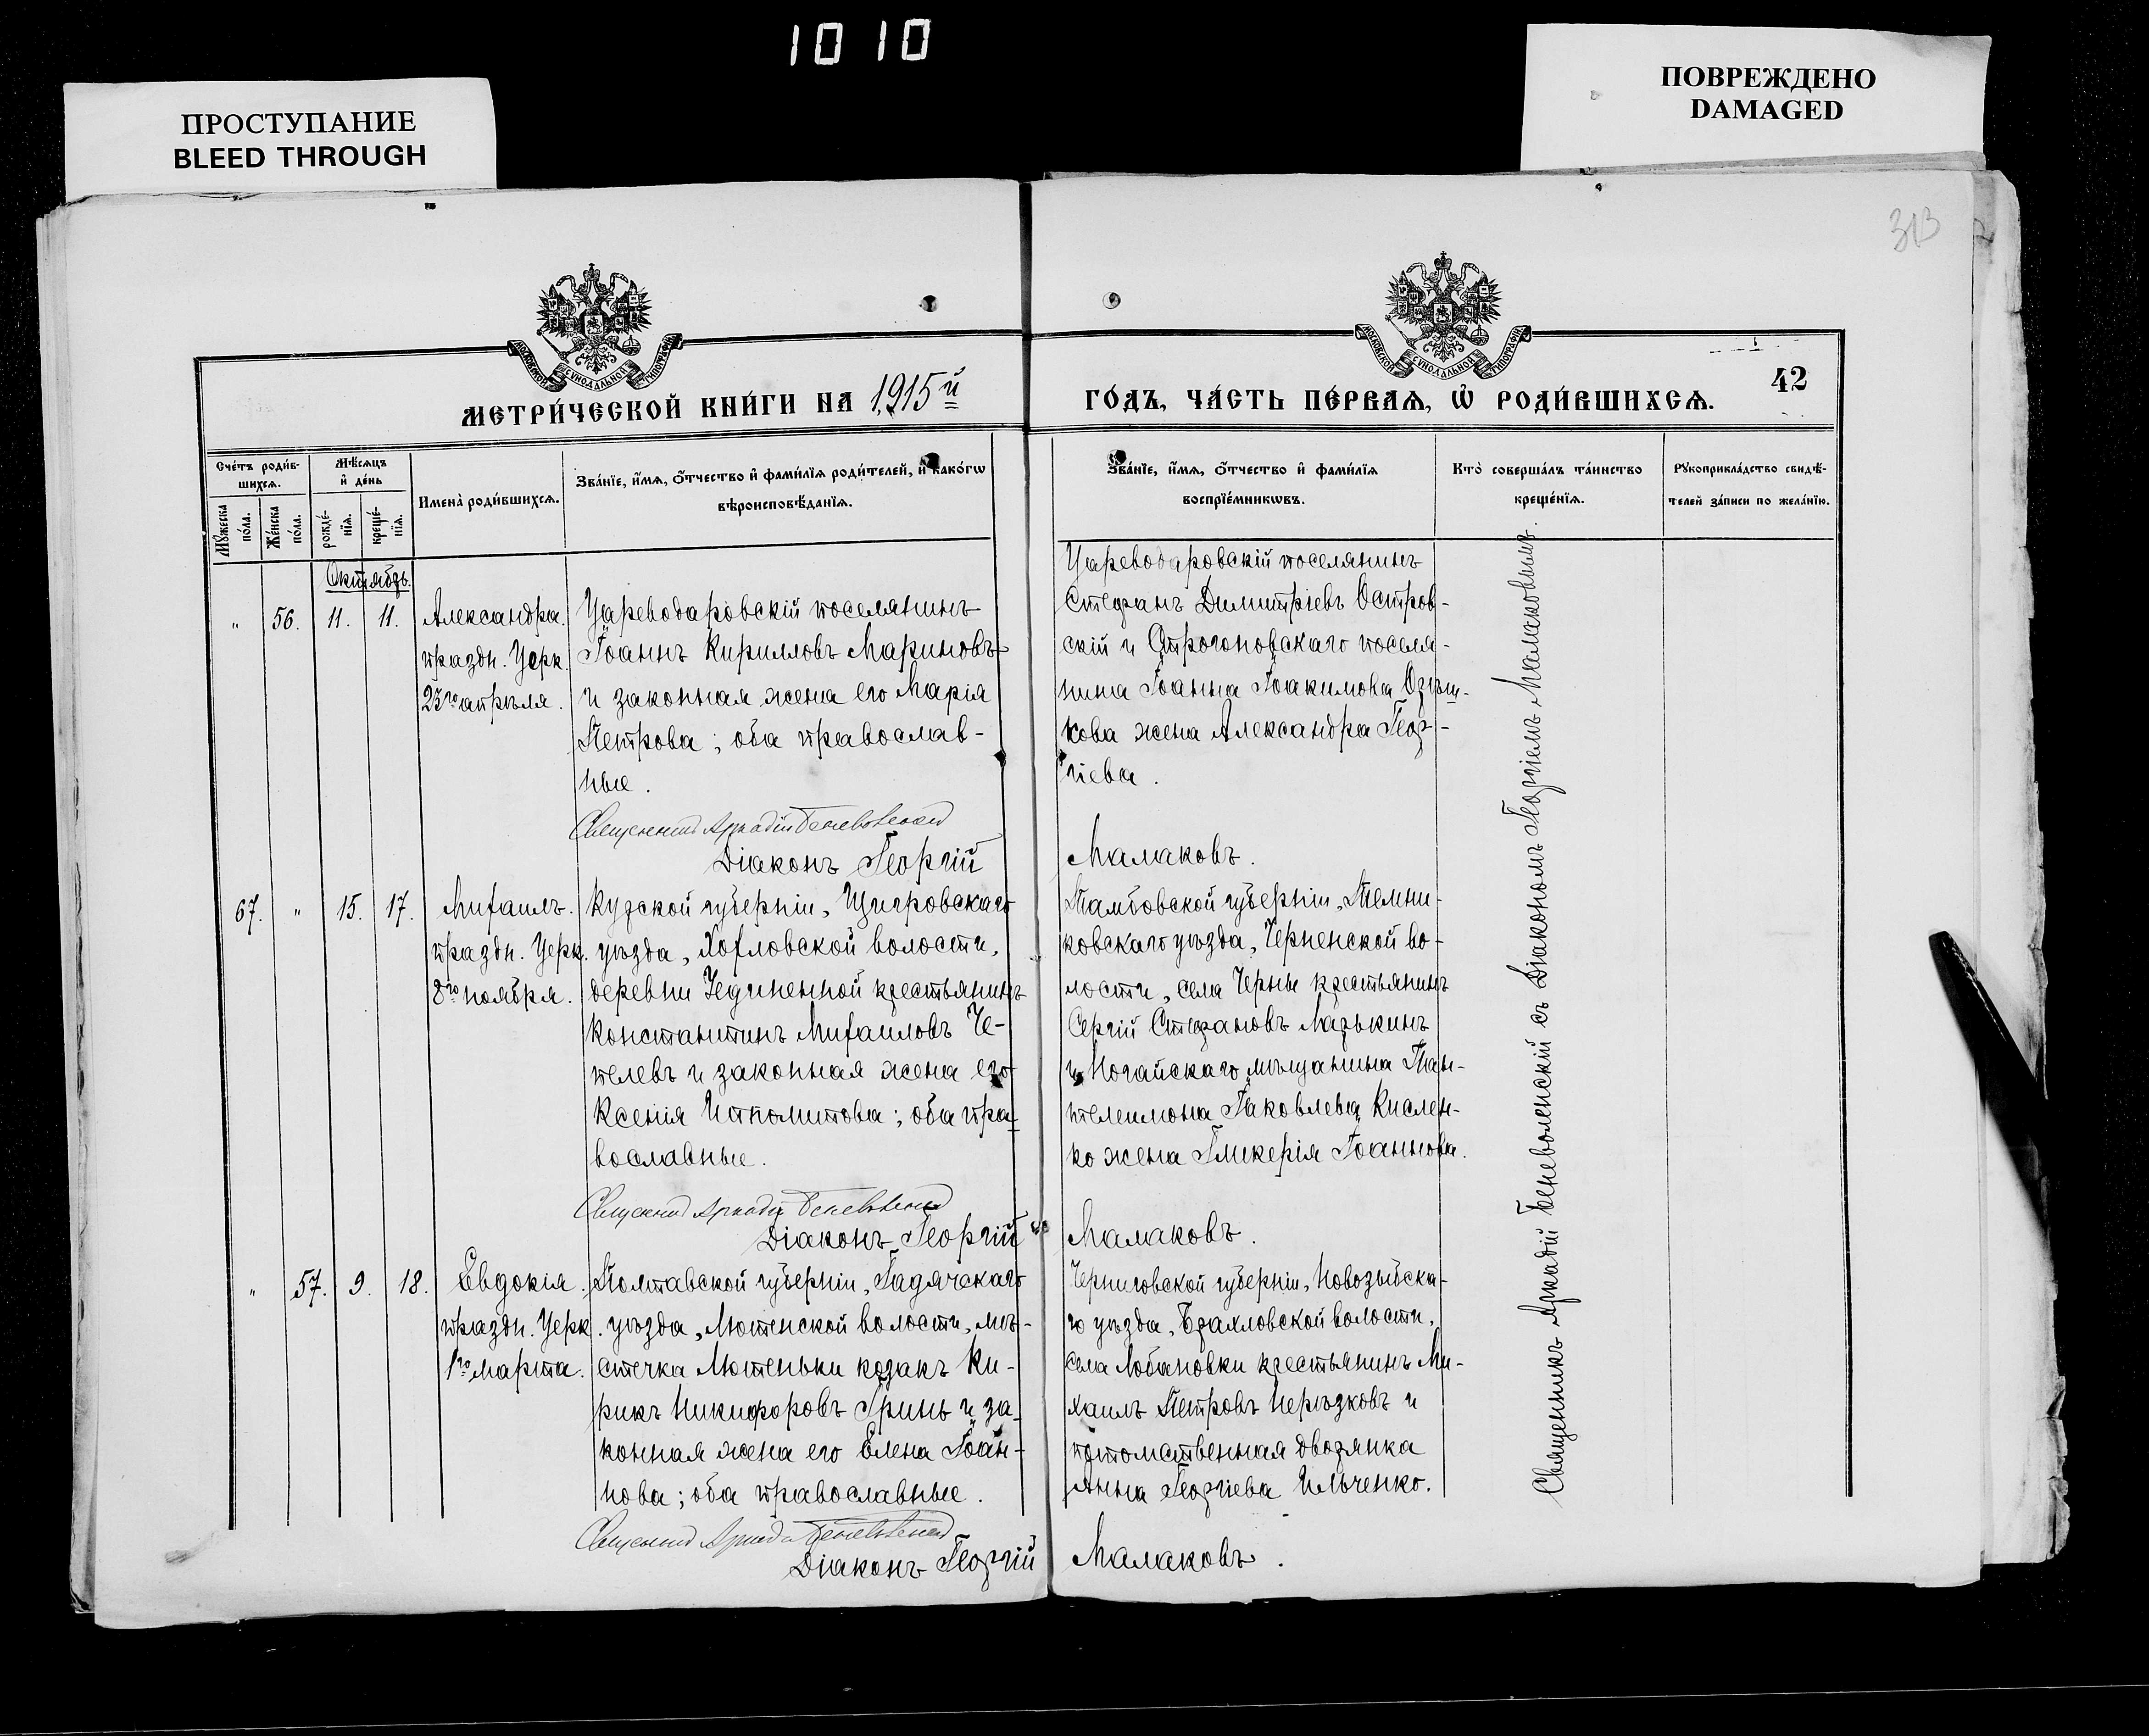 1010
ПРОСТУПАНИЕ
BLEED THROUGH
ПОВРЕЖДЕНО
DAMAGED
313
МОСКОВСКОЙ СУНОДАЛЬНОЙ ТИПОГРАФІИ
МОСКОВСКОЙ СУНОДАЛЬНОЙ ТИПОГРАФІИ
МЕТРИ́ЧЕСКОЙ КНИ́ГИ НА 1915й
ГО́ДЪ, ЧА́СТЬ ПЕ́РВАѦ, Ѡ҆ РОДИ́ВШИХСѦ.
42
Сче́тъ роди́в-
шихсѧ.
Мѣ́сѧцъ
и҆ де́нь
Мꙋ́жеска
по́ла.
Же́нска
по́ла.
рожде́-
нїѧ.
креще́-
нїѧ.
Имена̀ роди́вшихсѧ.
Зва́нїе, и҆́мѧ, ѻ҆́тчество и҆ фами́лїѧ роди́телей, и҆ како́гѡ
вѣроисповѣ́данїѧ.
Зва́нїе, и҆́мѧ, ѻ҆́тчество и҆ фами́лїѧ
воспрїе́мникѡвъ.
Кто̀ соверша́лъ та́инство
креще́нїѧ.
Рꙋкоприкла́дство свидѣ́-
телей за́писи по жела́нїю.
Октябрь.
" 56. 11. 11.
Александра.
праздн. Церк.
23го апрѣля.
Цареводаровскій поселянинъ
Іоаннъ Кирилловъ Мариновъ
и законная жена его Марія
Петрова; оба православ-
ные.
Священникъ Аркадій Беневоленскій
Діаконъ Георгій
Цареводаровскій поселянинъ
Стефанъ Димитріевъ Остров-
скій и Строгоновскаго поселя-
нина Іоанна Іоакимова
кова жена Александра Геор-
гіева.
Малаковъ.
67. " 15. 17.
Михаилъ.
праздн. Церк.
8го ноября.
Курской губерніи, Щигровскаго
уѣзда, Хохловской волости,
деревни Уединенной крестьянинъ
Константинъ Михаиловъ Че-
пелевъ и законная жена его
Ксенія Ипполитова; оба пра-
вославные.
Священникъ Аркадій Беневоленскій
Діаконъ Георгій
Тамбовской губерніи, Темни-
ковскаго уѣзда, Черненской во-
лости, села Черны крестьянинъ
Сергій Стефановъ Марькинъ
и Ногайскаго мѣщанина Пан-
телеимона Іаковлева Кислен-
ко жена Гликерія Іоаннова.
Малаковъ.
" 57. 9. 18.
Евдокія.
праздн. Церк.
1го марта.
Полтавской губерніи, Гадячскаго
уѣзда, Лютенской волости, мѣ-
стечка Лютеньки козакъ Ки-
рикъ Никифоровъ Гринь и за-
конная жена его Елена Іоан-
нова; оба православные.
Священникъ Аркадій Беневоленскій
Діаконъ Георгій
Черниговской губерніи, Новозыбска-
го уѣзда, Брахловской волости,
села Лобановки крестьянинъ Ми-
хаилъ Петровъ Нерѣзковъ и
потомственная дворянка
Анна Георгіева Ильченко.
Малаковъ.
Священникъ Аркадій Беневоленскій съ Діакономъ Георгіемъ Малаковымъ.